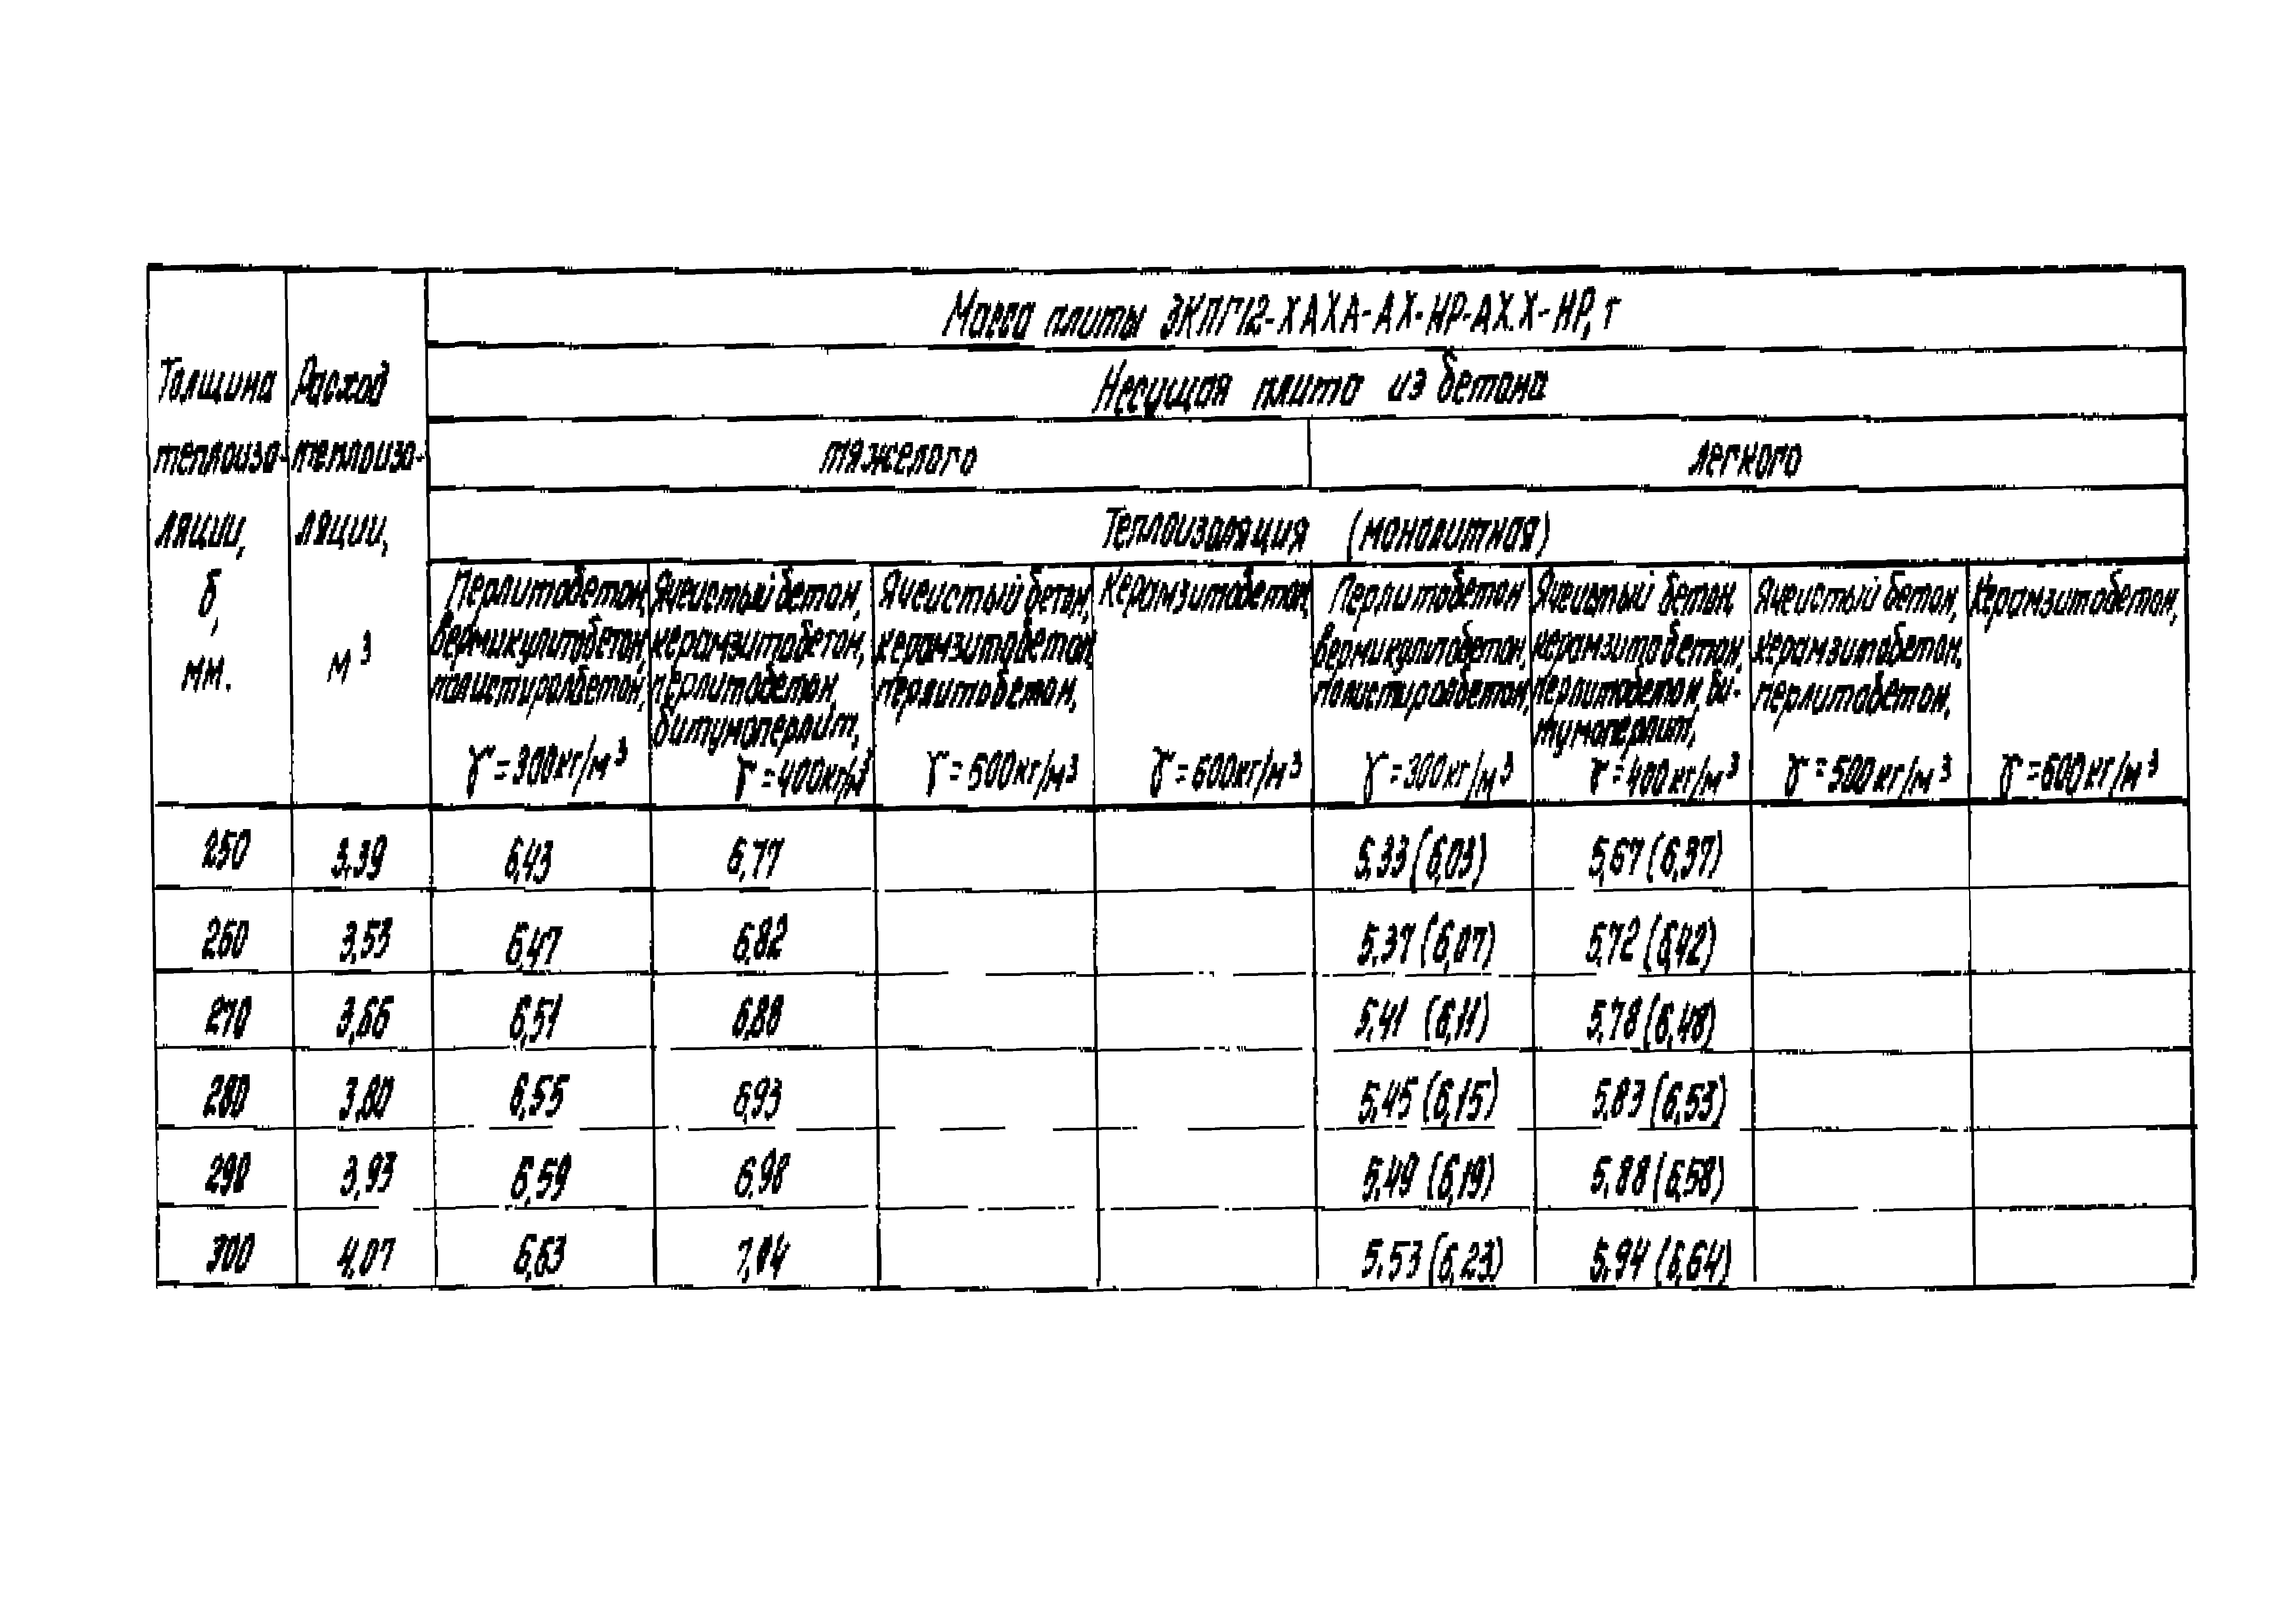 Масса плиты 3КПГ12-ХАХА-АХ-НР-АХ.Х-НР, т
Несущая плита из бетона
тяжелого
легкого
Теплоизоляция (монолитная)
Толщина
теплоизо-
ляции,
δ,
мм.
Расход
теплоизо-
ляции,
м³
Перлитобетон,
вермикулитобетон,
полистиролбетон,
γ=300кг/м³
Ячеистый бетон,
керамзитобетон,
перлитобетон,
битумоперлит,
γ=400кг/м³
Ячеистый бетон,
керамзитобетон,
перлитобетон,
γ=500кг/м³
Керамзитобетон,
γ=600кг/м³
Перлитобетон
вермикулитобетон,
полистиролбетон,
γ=300кг/м³
Ячеистый бетон,
керамзитобетон,
перлитобетон, би-
тумоперлит,
γ=400кг/м³
Ячеистый бетон,
керамзитобетон,
перлитобетон,
γ=500кг/м³
Керамзитобетон,
γ=600кг/м³
250 3,39 6,43 6,77 5,33(6,03) 5,67(6,37)
260 3,53 6,47 6,82 5,37(6,07) 5,72(6,42)
270 3,66 6,51 6,88 5,41 (6,11) 5,78(6,48)
280 3,80 6,55 6,93 5,45(6,15) 5,83(6,53)
290 3,93 6,59 6,98 5,49 (6,19) 5,88(6,58)
300 4,07 6,63 7,04 5,53(6,23) 5,94(6,64)